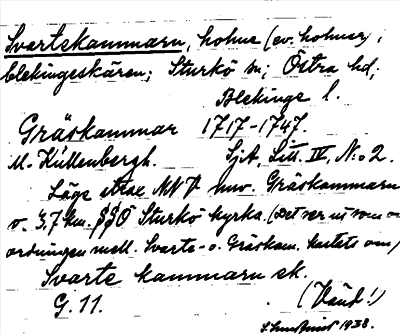 Svartekammarn, holme (ev. holmar) i
blekingeskären; Sturkö sn; Östra hd;
Blekinge l.
Gråskammar 1717-1747.
M. Küllenbergh. SjA, Litt. IV, N:o 2.
Läge NNV nuv. Gråskammarn
o. 3,7 km. Sturkö kyrka. (Det ser ut som om
ordningen mell. Svarte- o. Gråskam. kastats om)
Svarte kammarn sk.
G. 11. (Vänd!)
1938.